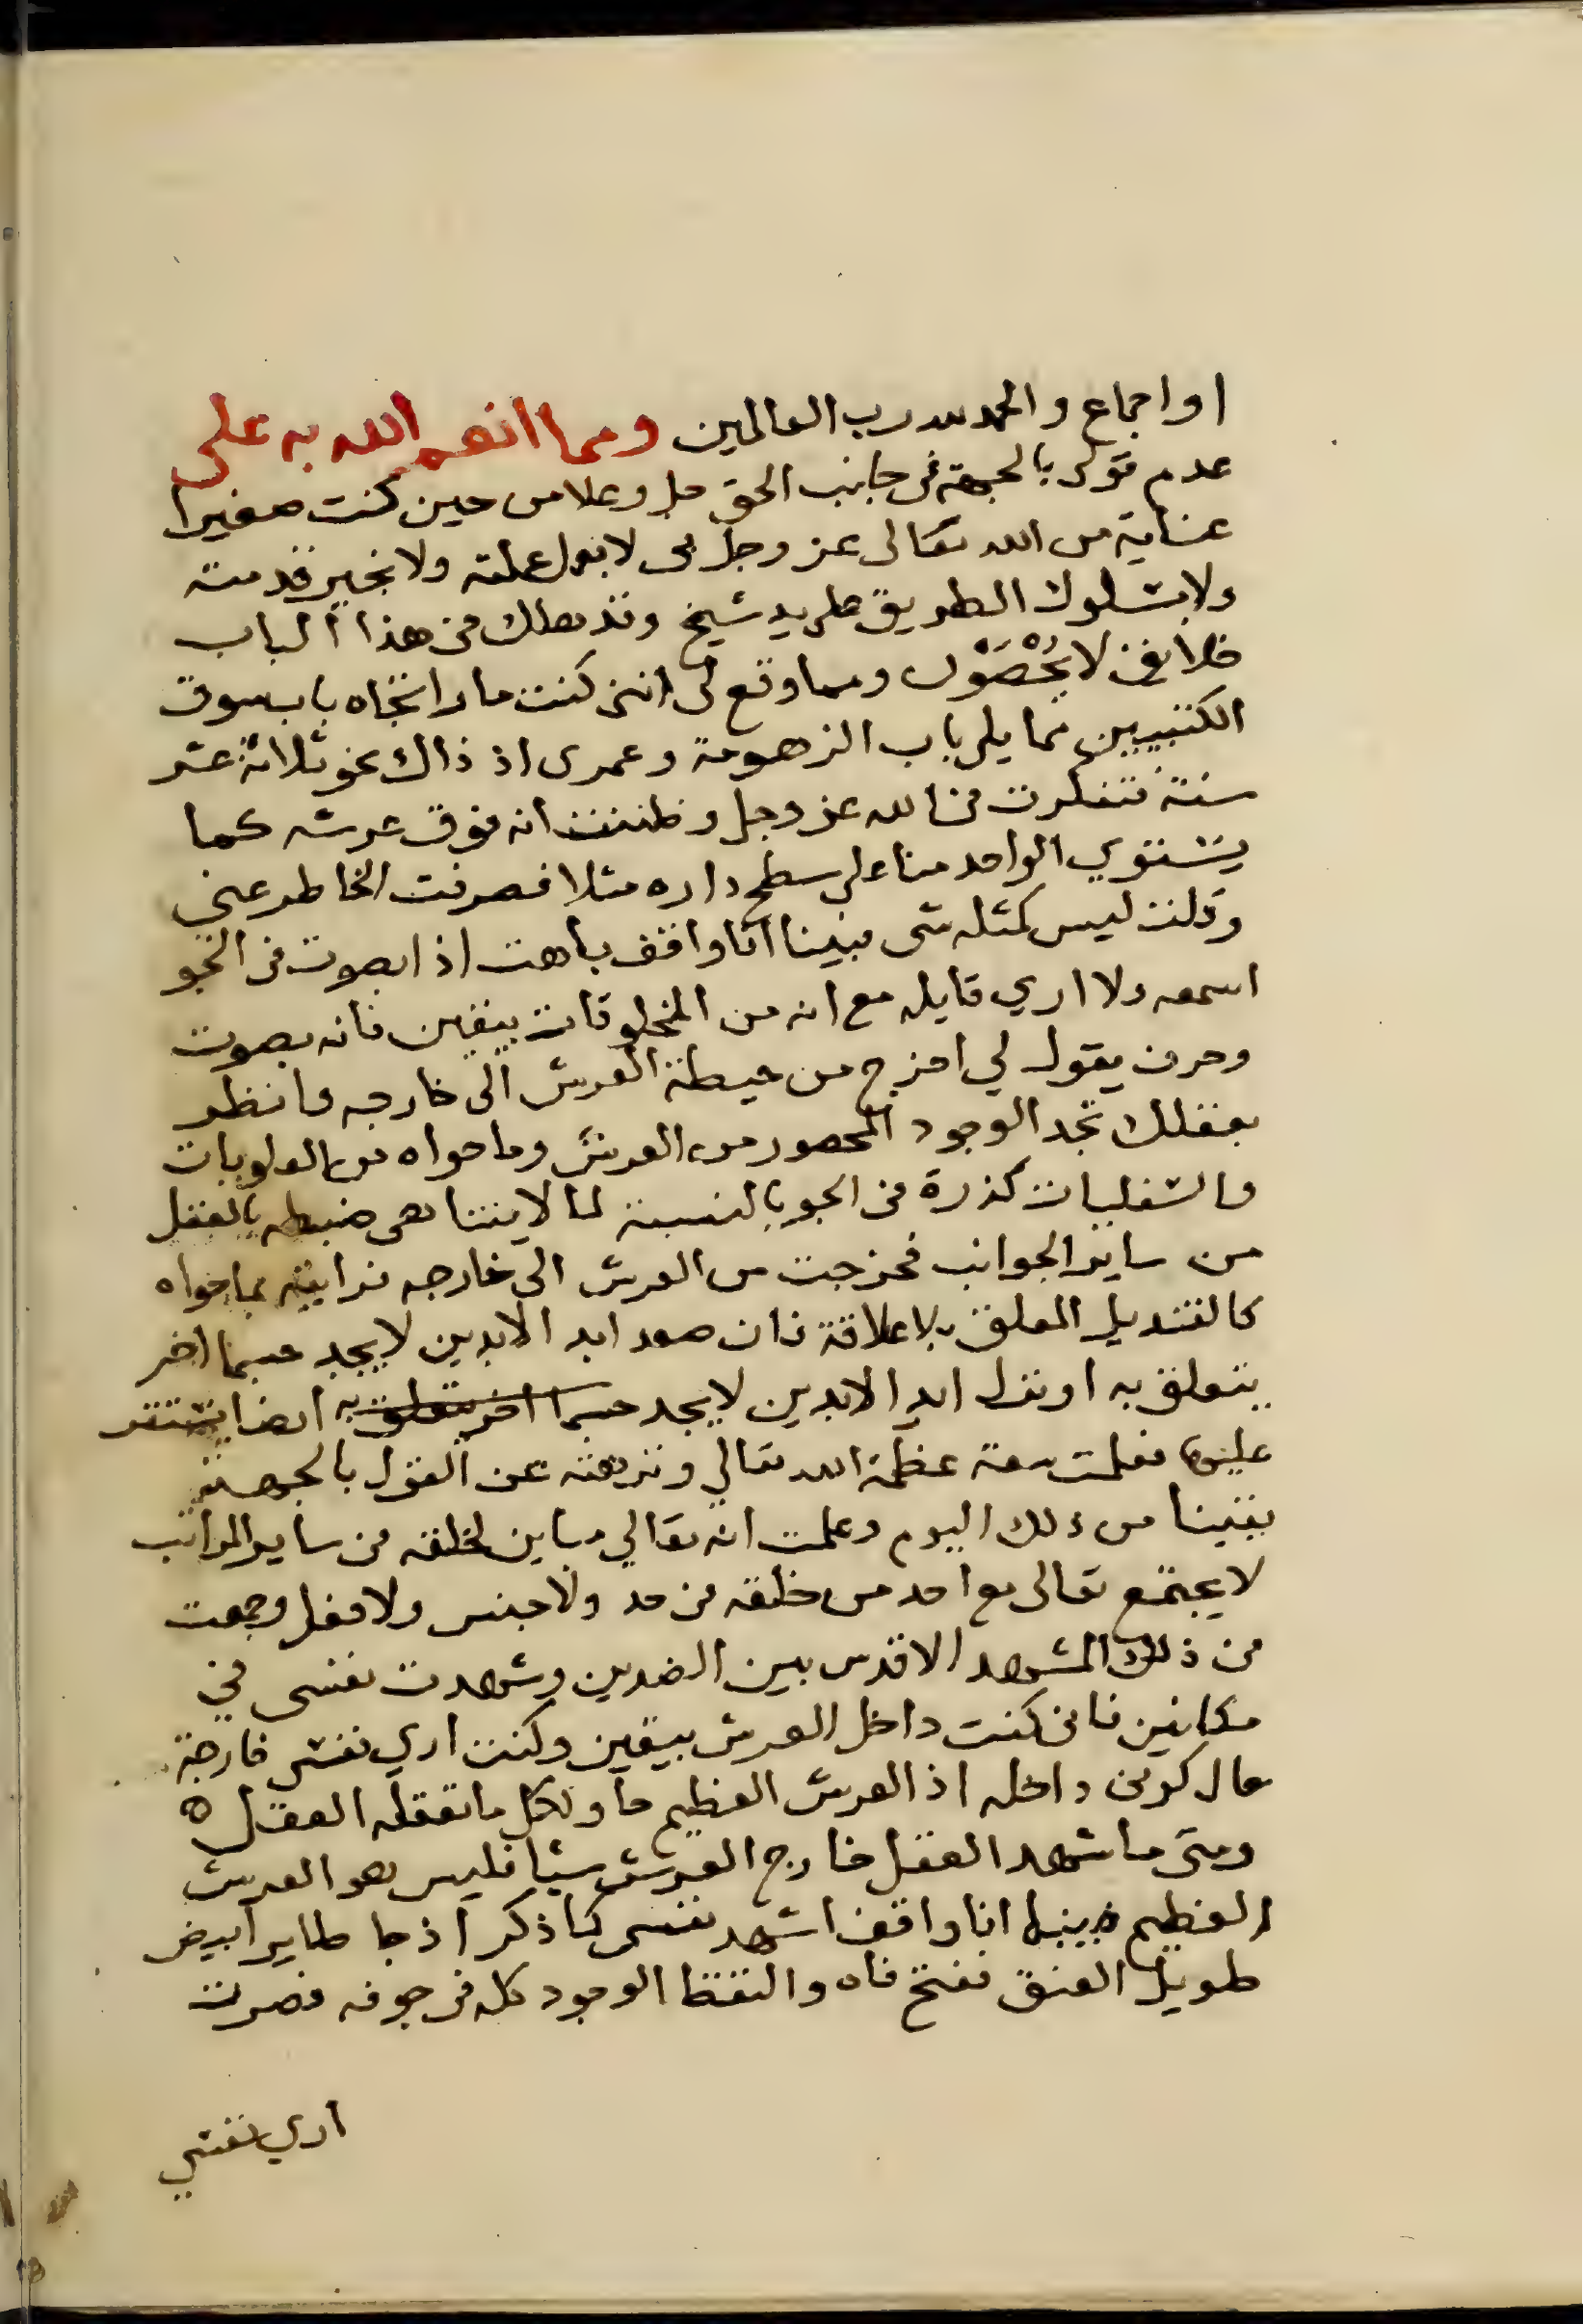 او اجماع والحمد لله رب العالمين ومما انعم الله به على
عدم قولى بالجهة فى جانب الحق جل وعلا من حين كنت صغيرا
عناية من الله تعالى عز وجل بى لا بعمل عملته ولا بخير قدمته
ولا بسلوك الطريق على يد شيخ وقد هلك فى هذا الباب
خلايق لا يُحْصَوْن ومما وقع لى اننى كنت مارا تجاه باب سوق
الكتبيين مما يلى باب الزهومة وعمرى اذ ذاك نحو ثلاثة عشر
سنة فتفكرت فى الله عز وجل وظننت انه فوق عرشه كما
يستوي الواحد منا على سطح داره مثلا فصرفت الخاطر عنى
وقلت ليس كمثله شى فبينا انا واقف باهت اذا بصوت فى الجو
اسمعه ولا اري قايله مع انه من المخلوقات بيقين فانه بصوت
وحرف يقول لي اخرج من حيطة العرش الى خارجه وانظر
بعقلك تجد الوجود المحصور من العرش وما حواه من العلويات
والسفليات كذرة فى الجو بالنسبة لما لا يتناهى ضبطه بالعقل
من ساير الجوانب فخرجت من العرش الى خارجه فرايته بما حواه
كالقنديل المعلق بلا علاقة فان صعد ابد الابدين لا يجد جسما اخر
يتعلق به او نزل ابد الابدين لا يجد جسما اخر يتعلق به ارضا يستقر
عليها فعلمت سعة عظمة الله تعالي ونزهته عن القول بالجهة
يقينا من ذلك اليوم وعلمت انه تعالي مباين لخلقه فى ساير المراتب
لا يجتمع تعالى مع احد من خلقه فى حد ولا جنس ولا فصل وجمعت
فى ذلك المشهد الاقدس بين الضدين وشهدت نفسى في
مكانين فانى كنت داخل العرش بيقين وكنت اري نفسى خارجة
حال كونى داخله اذ العرش العظيم حاو لكل ما تعقله العقل ه
ومتى ما شهد العقل خارج العرش شيا فليس هو العرش
العظيم فبينا انا واقف اشهد نفسى كما ذكر اذ جا طاير ابيض
طويل العنق ففتح فاه والتقط الوجود كله فى جوفه فصرت
اري نفسي